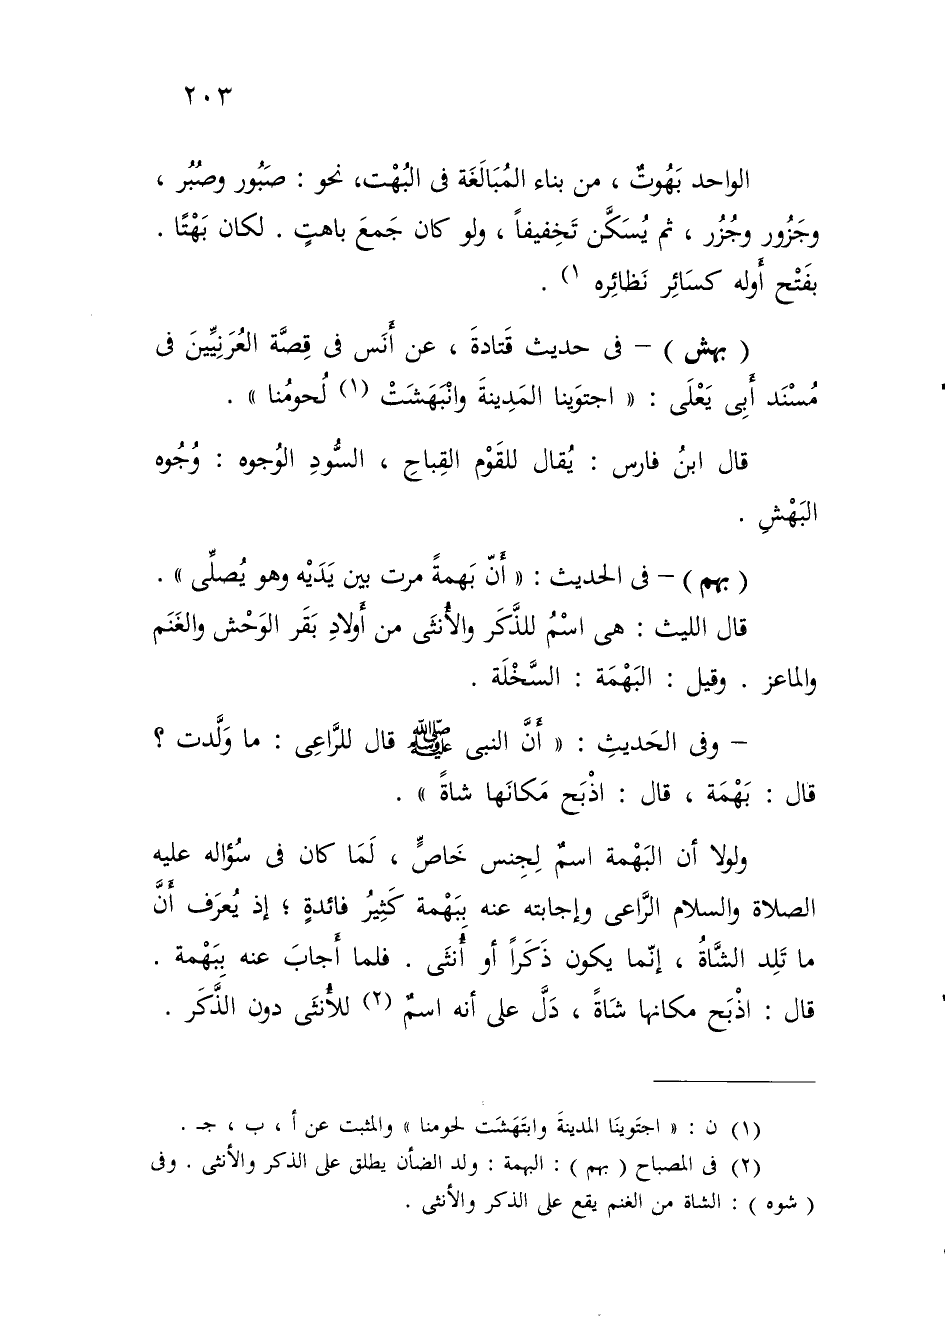 ٢٠٣
الواحد بَهُوتٌ ، من بناء المُبَالَغَة فى البُهْت، نحو : صَبُور وصُبُر ،
وجَزُور وجُزُر ، ثم يُسَكَّن تَخفيفاً ، ولو كان جَمعَ باهتٍ . لكان بَهْتًا .
بفَتْح أَوله كسَائِر نَظائِره ١) .
( بهش ) – فى حديث قَتادةَ ، عن أَنَس فى قِصَّة العُرَنِيِّينَ فى
مُسْنَد أَبِى يَعْلَى : « اجتوَينا المَدِينةَ وانْبَهَشَتْ (١) لُحومُنا » .
قال ابنُ فارس : يُقال للقَوْم القِباحِ ، السُّودِ الوُجوه : وُجُوه
البَهْشِ .
( بهم ) – فى الحديث : « أَنّ بَهمةً مرت بين يَدَيْه وهو يُصلِّى » .
قال الليث : هى اسْمُ للذَّكَر والأُنثَى من أَولادِ بَقَر الوَحْش والغَنَم
والماعز . وقيل : البَهْمَة : السَّخْلَة .
– وفى الحَديثِ : « أَنَّ النبى ﷺ قال للرَّاعِى : ما وَلَّدت ؟
قال : بَهْمَة ، قال : اذْبَح مَكانَها شاةً » .
ولولا أن البَهْمة اسمٌ لِجِنس خَاصٍّ ، لَمَا كان فى سُؤاله عليه
الصلاة والسلام الرَّاعى وإجابته عنه بِبَهْمة كَثِيرُ فائدةٍ ؛ إذ يُعرَف أَنَّ
ما تَلِد الشَّاةُ ، إنّما يكون ذَكَراً أو أُنثَى . فلما أَجابَ عنه بِبَهْمة .
قال : اذْبَح مكانها شَاةً ، دَلَّ على أنه اسمٌ (٢) للأُنثَى دون الذَّكَر .
(١) ن : « اجتَوينَا المدينةَ وابتَهَشَت لحومنا » والمثبت عن أ ، ب ، جـ .
(٢) فى المصباح ( بهم ) : البهمة : ولد الضأن يطلق على الذكر والأنثى . وفى
( شوه ) : الشاة من الغنم يقع على الذكر والأنثى .